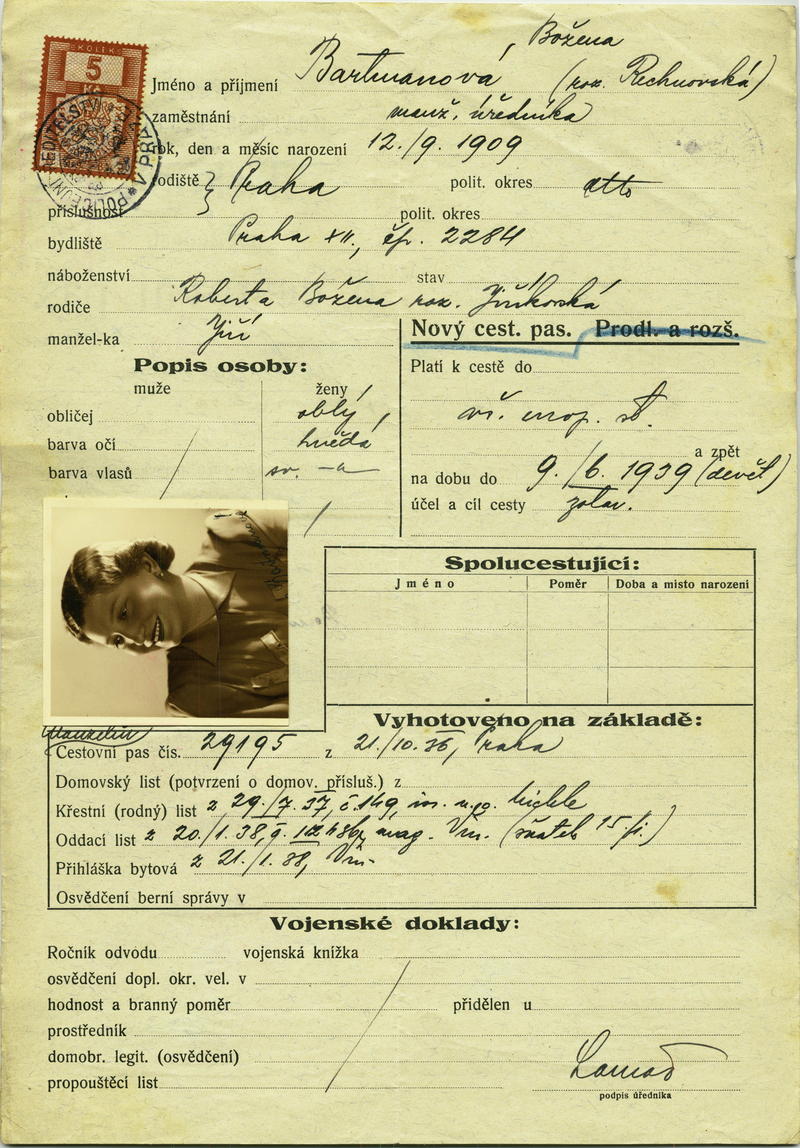 KOLEK
5
POLICEJNÍ ŘEDITELSTVÍ V PRAZE
, Božena
Jméno a příjmení Bartmanová (roz. Rechnovská)
zaměstnání manž. úředníka
rok, den a měsíc narození 12./9. 1909
rodiště } Praha polit. okres
příslušnost polit. okres
bydliště Praha XII., čp. 2284
náboženství stav
rodiče Roberta Božena roz. Jiříkovská
manžel-ka Jiří
Nový cest. pas. Prodl. a rozš.
Popis osoby:
muže ženy
obličej oblý
barva očí hnědá
barva vlasů sv. -a
Platí k cestě do
vš. evrop. st.
a zpět
na dobu do 9./6. 1939 (devět)
účel a cíl cesty zotav.
Spolucestující:
Jméno Poměr Doba a místo narození
Vyhotoveno na základě:
Manželův
Cestovní pas čís. 29195 z 21/10. 36, Praha
Domovský list (potvrzení o domov. přísluš.) z
Křestní (rodný) list z 29./7. 37, č. 149,
Oddací list z 20./1. 38, mag. Vin.
Přihláška bytová z 21./1. 38, Vin.
Osvědčení berní správy v
Vojenské doklady:
Ročník odvodu vojenská knížka
osvědčení dopl. okr. vel. v
hodnost a branný poměr přidělen u
prostředník
domobr. legit. (osvědčení)
propouštěcí list
podpis úředníka